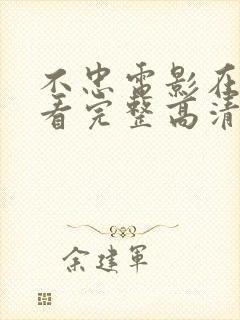 不忠电影在
看完整高清
余建军